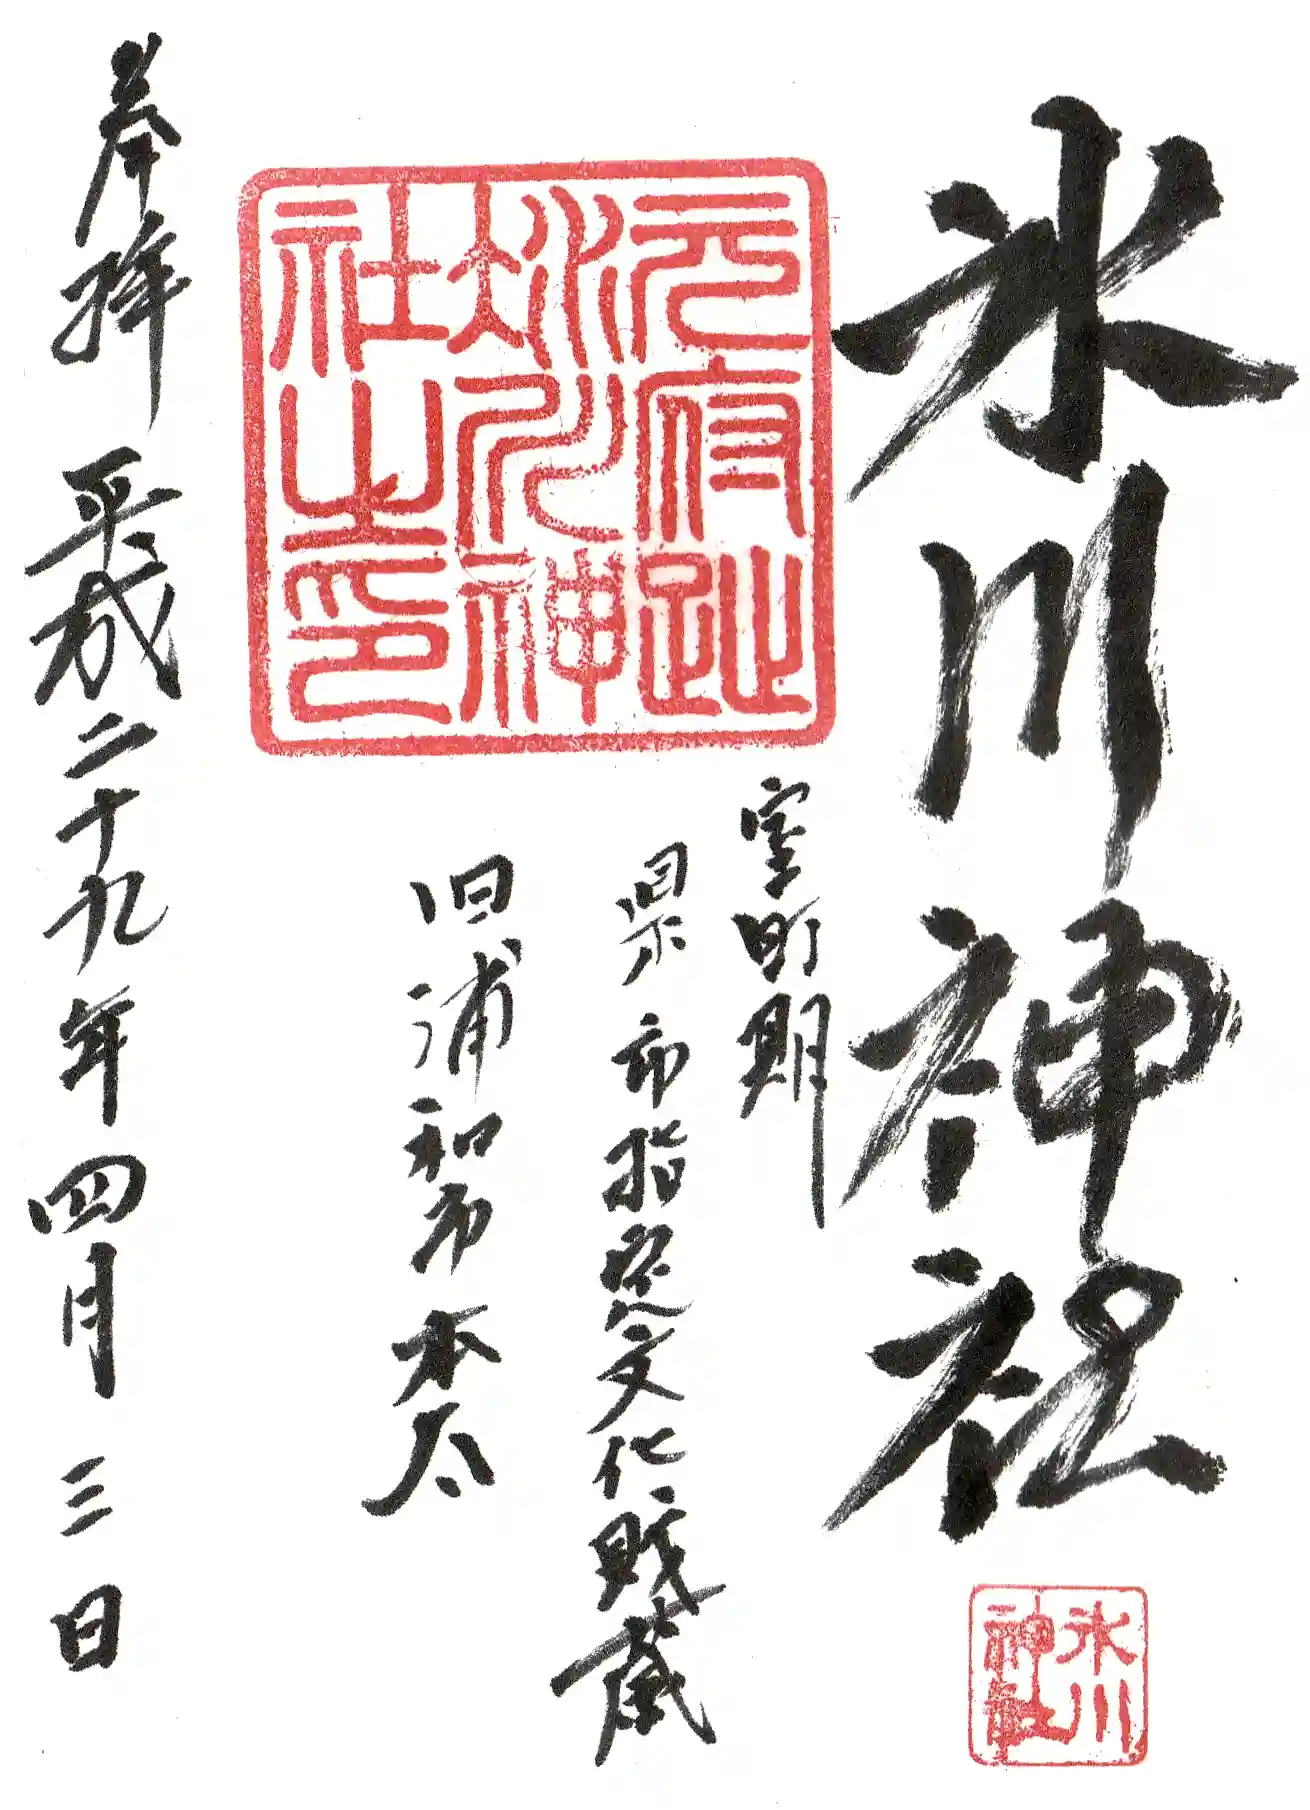 氷川神社
氷川
神社
室町期
県市指定文化財蔵
元府趾
氷川神
社之印
旧浦和市本太
奉拝 平成二十九年四月三日